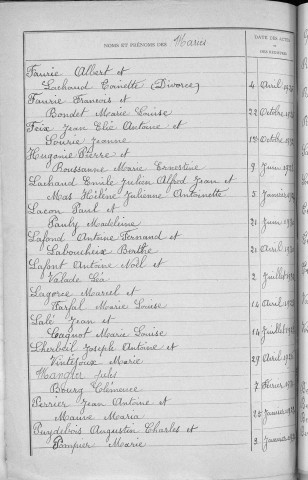 NOMS ET PRÉNOMS DES Mariés
DATE DES ACTES
Faurie Albert et
Lachaud Canette (Divorce) 4 Avril
Faurie François et
Bondet Marie Louise 22 Octobre
Feix Jean Elie Antoine et
Sourie Jeanne Octobre
Hugonie Pierre et
Roussanne Marie Ernestine 9 Juin
Lachaud Emile Julien Alfred Jean et
Mas Hélène Julienne Antoinette 5 Janvier
Lacon Paul et
Pauty Madeleine 21 Juin
Lafond Antoine Fernand et
Laboucheix Berthe 21 Avril
Lafont Antoine Noël et
Valade Léa 2 Juillet
Lagorce Marcel et
Farfal Marie Louise 14 Avril
Lalé Jean et
Cagnot Marie Louise 14 Juillet
Lherbeil Joseph Antoine et
Vintéjoux Marie 29 Avril
Mangier Jules
Bourg Clémence 7 Février
Perrier Jean Antoine et
Mauve Maria Janvier
Puydebois Augustin Charles et
Pompier Marie 3 Janvier